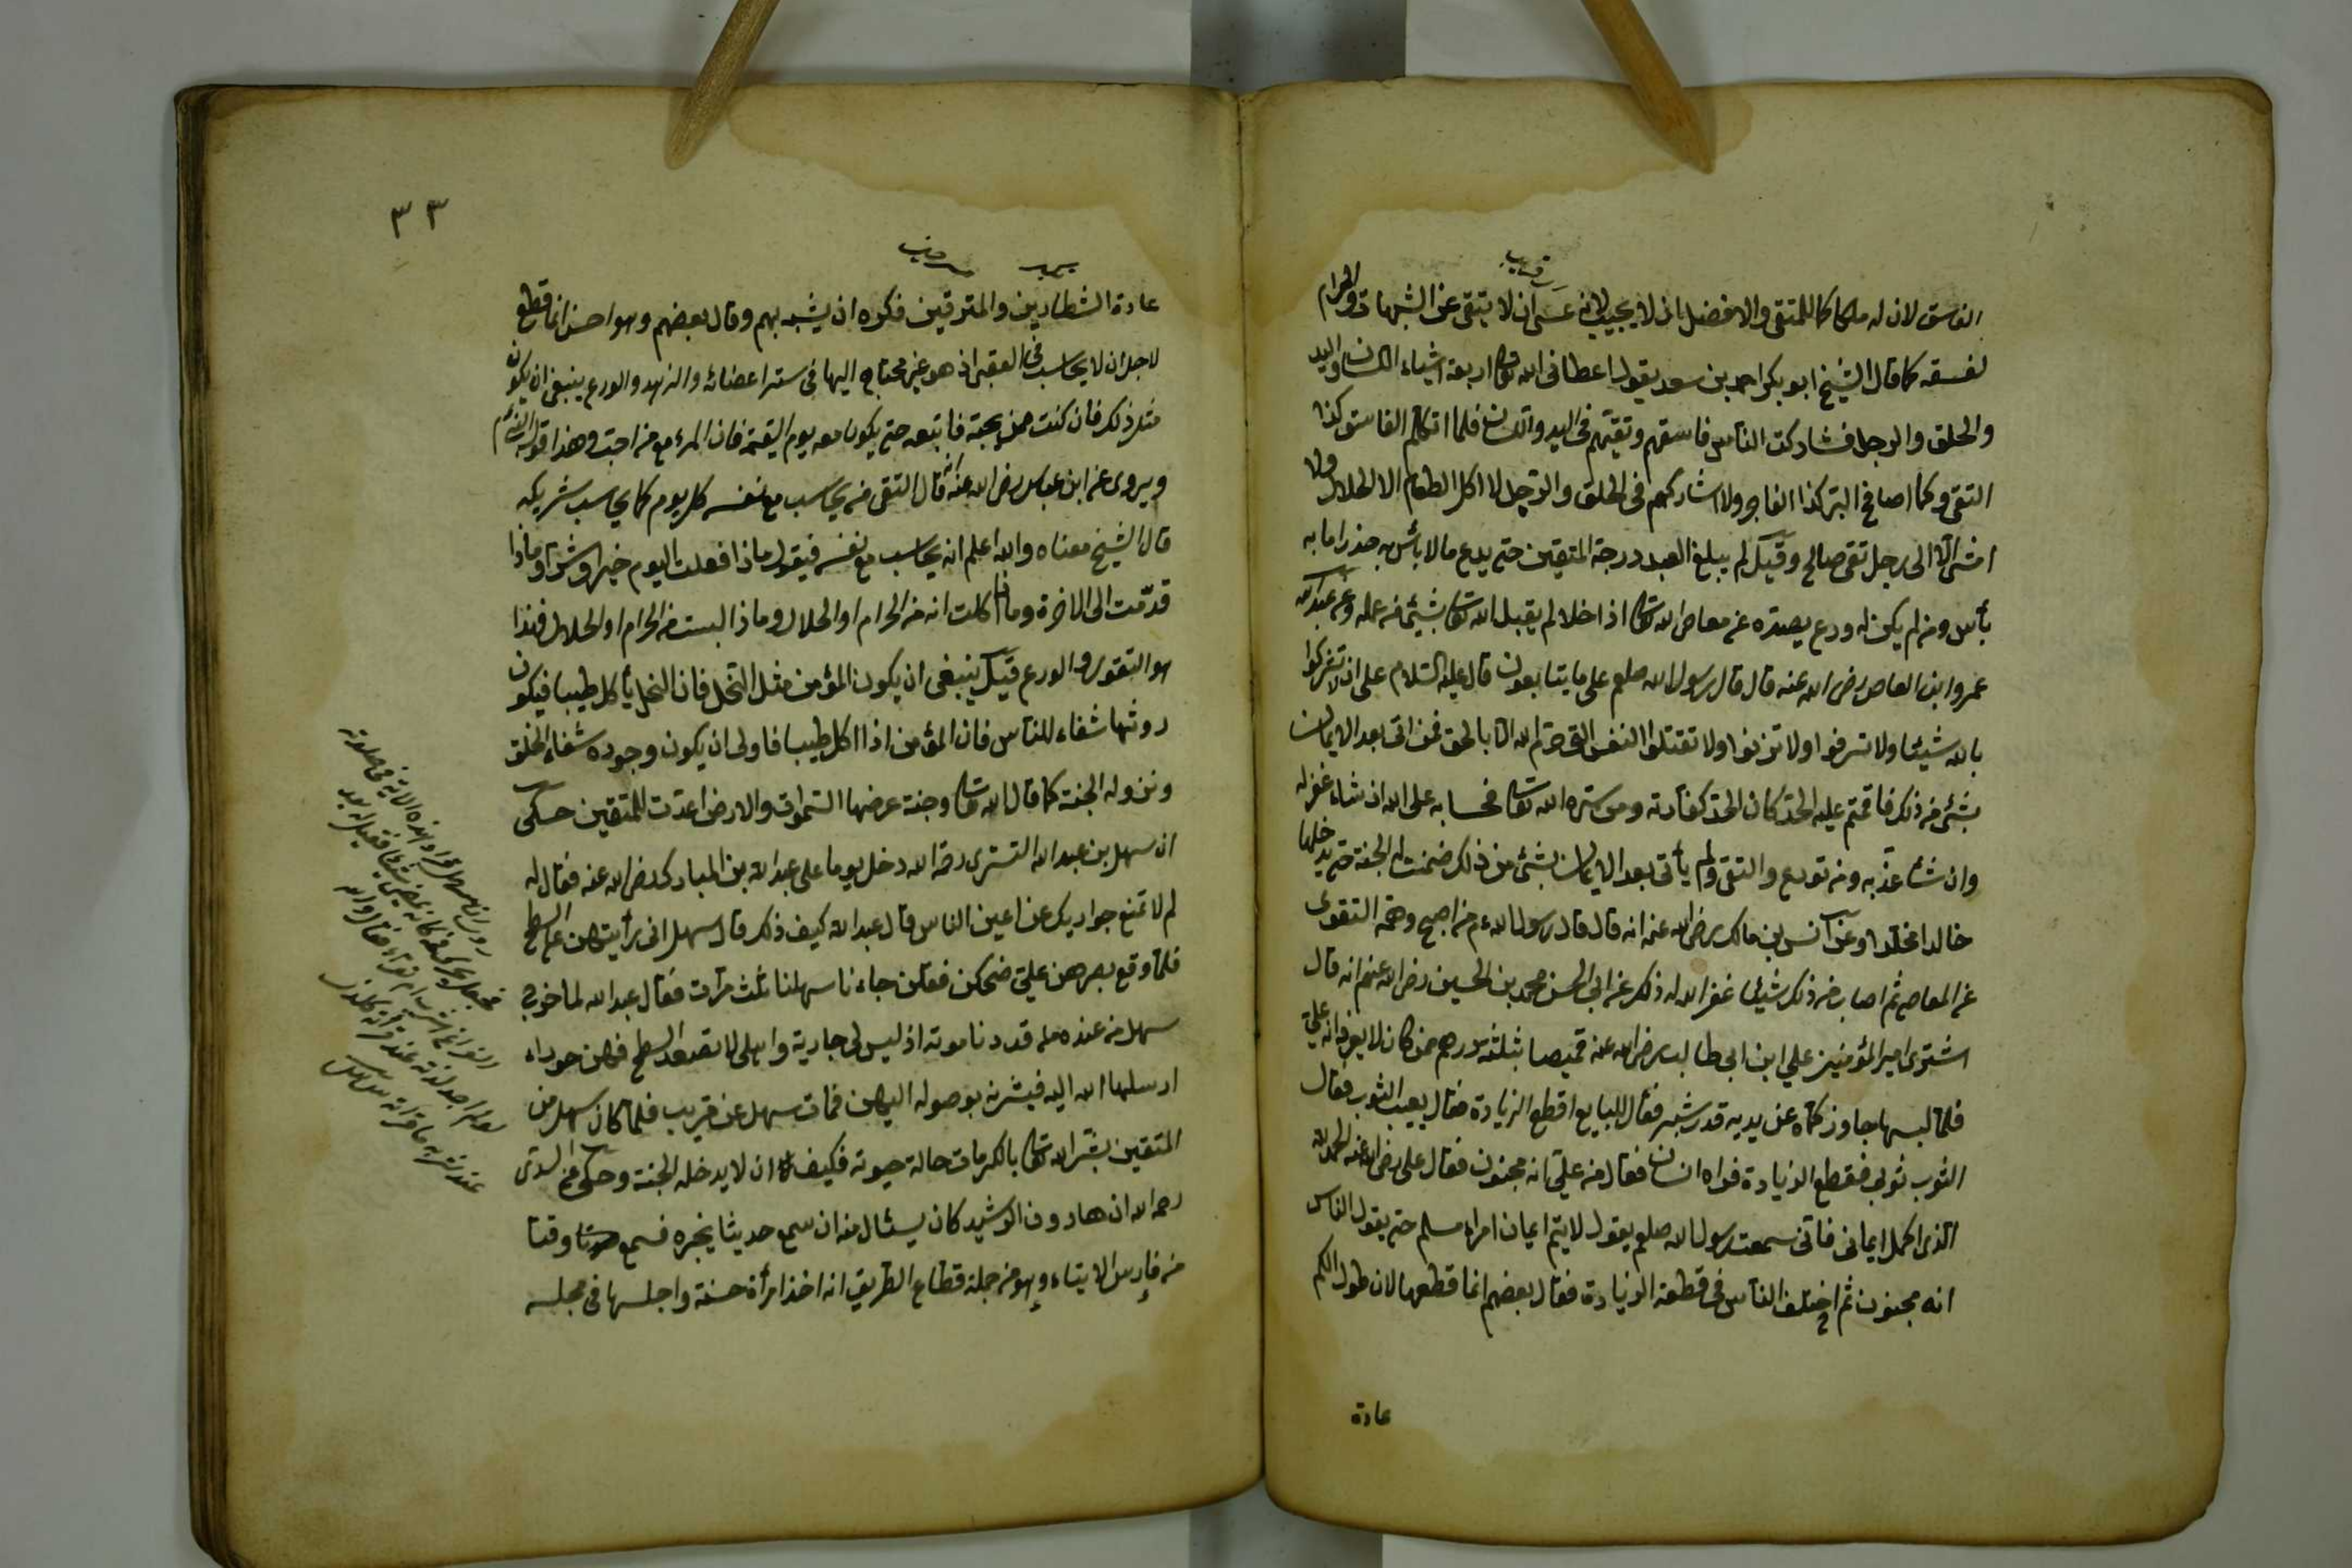 الفاسق لان له ملكا كما للمتقى والافضل ان لا يجيب لانه عسى ان لا يتقى عن الشبهات والحرام
لفسقه كما قال الشيخ ابو بكر احمد بن سعد يقول اعطانى الله تعا اربعة اشياء اللسان واليد
والحلق والرجل فشاركت الناس فاسقهم وتقيهم فى اليد واللسان فلما اتكلم الفاسق كذا
التقى وكما اصافح البر كذا الفاجر ولا اشاركهم فى الحلق والرجل لا اكل الطعام الا الحلال ولا
امشى الا الى رجل تقى صالح وقيل لم يبلغ العبد درجة المتقين حتى يدع ما لا بأس به حذرا ما به
بأس ومن لم يكن له ورع يصده عن معاصى الله تعا اذا خلا لم يقبل الله تعا بشيئ من عمله وعن عبد الله
عمرو ابن العاص رضى الله عنه قال قال رسول الله صلعم على ما يتابعون قال عليه السلام على ان لا تشركوا
بالله شيئا ولا تسرفوا ولا تزنوا ولا تقتلوا النفس التى حرم الله الا بالحق فمن اتى بعد الايمان
بشئ من ذلك فاقمتم عليه الحد كان الحد كفارته ومن ستره الله تعا فحسابه على الله ان شاء غفر له
وان شاء عذبه ومن تورع والتقى ولم يأتى بعد الايمان بشئ من ذلك ضمنت له الجنة حتى يدخلها
خالدا مخلدا وعن انس بن مالك رضى الله عنه انه قال قال رسول الله عم من اصبح وهمه التقوى
عن المعاصى ثم اصاب من ذلك شيئا غفر الله له ذلك عن ابى الحسن محمد بن الحسين رضى الله عنهم انه قال
اشترى امير المؤمنين علي ابن ابى طالب رضى الله عنه قميصا بثلثة درهم ممن كان لا يعرف انه علي
فلما لبسها جاوز كماه عن يديه قدر شبر فقال للبايع اقطع الزيادة فقال يعيب الثوب فقال
الثوب ثوبى فقطع الزيادة فراه انسان فقال من علي انه مجنون فقال على رضى الله عنه الحمد لله
الذى اكمل ايمانى فانى سمعت رسول الله صلعم يقول لا يتم ايمان امراء مسلم حتى يقول الناس
انه مجنون ثم اختلف الناس فى قطعة الزيادة فقال بعضهم انما قطعها لان طول الكم
عادة
٣٣
عادة الشطارين والمترفين فكره ان يشبه بهم وقال بعضهم وهو احسن انما قطع
لاجل ان لا يحاسب فى العقبى اذ هو غير محتاج اليها فى ستر اعضائه والزهد والورع ينبغى ان يكون
مثل ذلك فان كنت ممن يحبه فاتبعه حتى يكون معه يوم القيمة فان المرء مع من احب وهذا قوله
ويروى عن ابن عباس رضى الله عنه انه قال التقى من يحاسب مع نفسه كل يوم كما يحاسب شريكه
قال الشيخ معناه والله اعلم انه يحاسب مع نفسه فيقول ماذا فعلت اليوم خيرا او شرا وماذا
قدمت الى الاخرة وماذا اكلت انه من الحرام او الحلال وماذا لبست من الحرام او الحلال فهذا
هو التقوى والورع قيل ينبغى ان يكون المؤمن مثل النحل فان النحل يأكل طيبا فيكون
روثها شفاء للناس فان المؤمن اذا اكل طيبا فاولى ان يكون وجوده شفاء الخلق
ونزوله الجنة كما قال الله تعا وجنة عرضها السموات والارض اعدت للمتقين حكى
ان سهل بن عبد الله التسترى رحمة الله دخل يوما على عبد الله بن المبارك رضى الله عنه فقال له
لم لا تمنع جواريك عن اعين الناس قال عبد الله كيف ذلك قال سهل انى رأيتهن على السطح
فلما وقع بصرهن علي ضحكن فقلن جاءنا سهلنا ثلث مرات فقال عبد الله لما خرج
سهل من عنده قد دنا موته اذ ليس لى جارية واهلى لا تصعد السطح فهن حوراء
ارسلها الله اليه فيبشرنه بوصوله اليهن فمات سهل عن قريب فلما كان سهل من
المتقين بشر الله تعا بالكرمات حالة حيوته فكيف ان لا يدخله الجنة وحكى عن السدى
رحمه الله ان هارون الرشيد كان يسئال منه ان سمع حديثا يخبره فسمع وقتا
من فارس الايتاء وهو من جملة قطاع الطريق انه اخذ امرأة حسنة واجلسها فى مجلسه